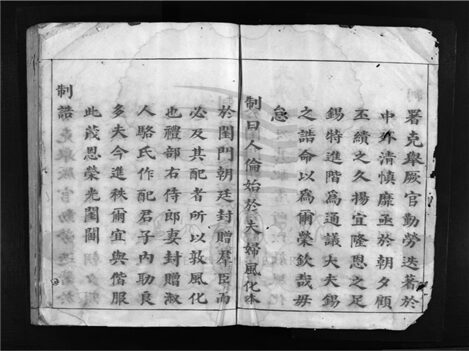 署克舉厥官勤勞迭著於
中外清慎靡亟於朝夕顧
丕績之久揚宜隆恩之足
錫特進階為通議大夫錫
之誥命以為爾榮欽哉毋
怠
制曰人倫始於夫婦風化本
於閨門朝廷封贈羣臣而
必及其配者所以敦風化
也禮部右侍郎妻封贈淑
人駱氏作配君子內助良
多夫今進秩爾宜與偕服
此茂恩榮光閨閫
制誥